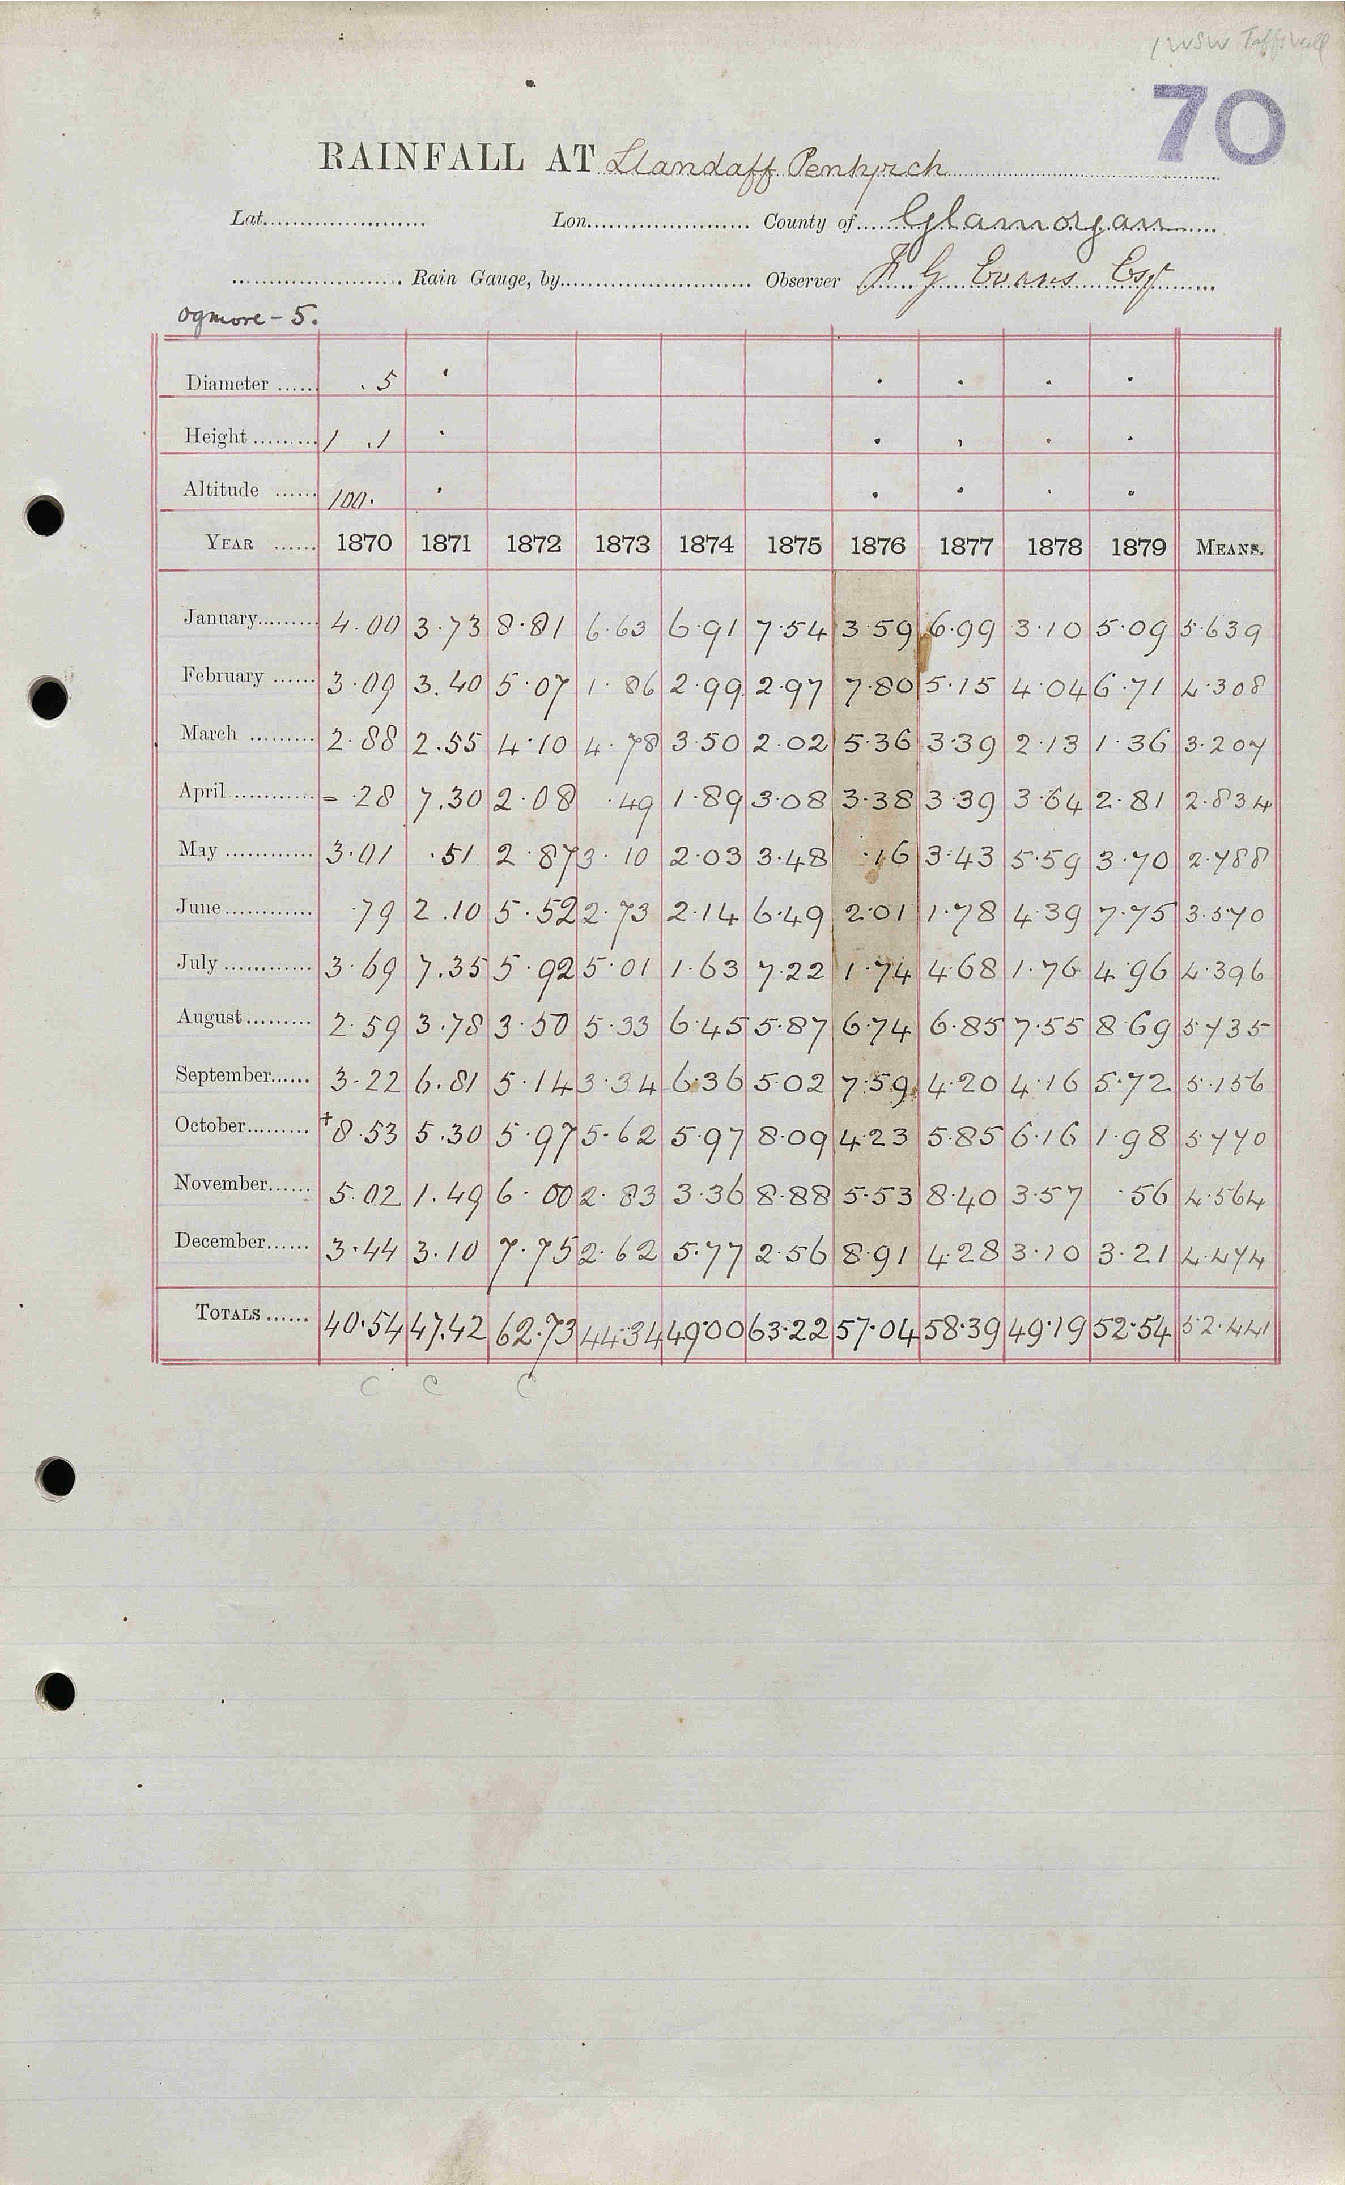 1 WSW Taffswell
70
RAINFALL AT Llandaff Pentyrch
Lat. Lon. County of Glamorgan
Rain Gauge, by Observer F G Evans Esq
Ogmore - 5.
Diameter .5
Height 1 .1
Altitude 100.
YEAR 1870 1871 1872 1873 1874 1875 1876 1877 1878 1879 MEANS.
January 4.00 3.73 8.81 6.63 6.91 7.54 3.59 6.99 3.10 5.09 5.639
February 3.09 3.40 5.07 1.86 2.99 2.97 7.80 5.15 4.04 6.71 4.308
March 2.88 2.55 4.10 4.78 3.50 2.02 5.36 3.39 2.13 1.36 3.207
April - .28 7.30 2.08 .49 1.89 3.08 3.38 3.39 3.64 2.81 2.834
May 3.01 .51 2.87 3.10 2.03 3.48 .16 3.43 5.59 3.70 2.788
June .79 2.10 5.52 2.73 2.14 6.49 2.01 1.78 4.39 7.75 3.570
July 3.69 7.35 5.92 5.01 1.63 7.22 1.74 4.68 1.76 4.96 4.396
August 2.59 3.78 3.50 5.33 6.45 5.87 6.74 6.85 7.55 8.69 5.735
September 3.22 6.81 5.14 3.34 6.36 5.02 7.59 4.20 4.16 5.72 5.156
October +8.53 5.30 5.97 5.62 5.97 8.09 4.23 5.85 6.16 1.98 5.770
November 5.02 1.49 6.00 2.83 3.36 8.88 5.53 8.40 3.57 .56 4.564
December 3.44 3.10 7.75 2.62 5.77 2.56 8.91 4.28 3.10 3.21 4.474
TOTALS 40.54 47.42 62.73 44.34 49.00 63.22 57.04 58.39 49.19 52.54 52.441
C C C